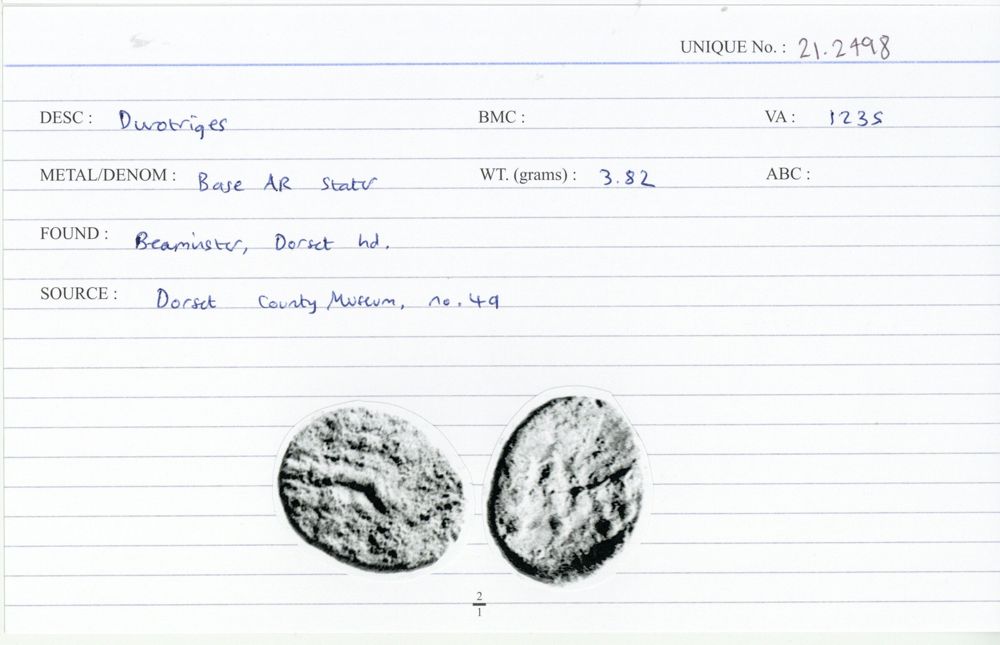 UNIQUE No. : 21.2498
DESC : Durotriges BMC : VA : 1235
METAL/DENOM : Base AR stater WT. (grams) : 3.82 ABC :
FOUND : Beaminster, Dorset hd.
SOURCE : Dorset County Museum, no. 49
2
1